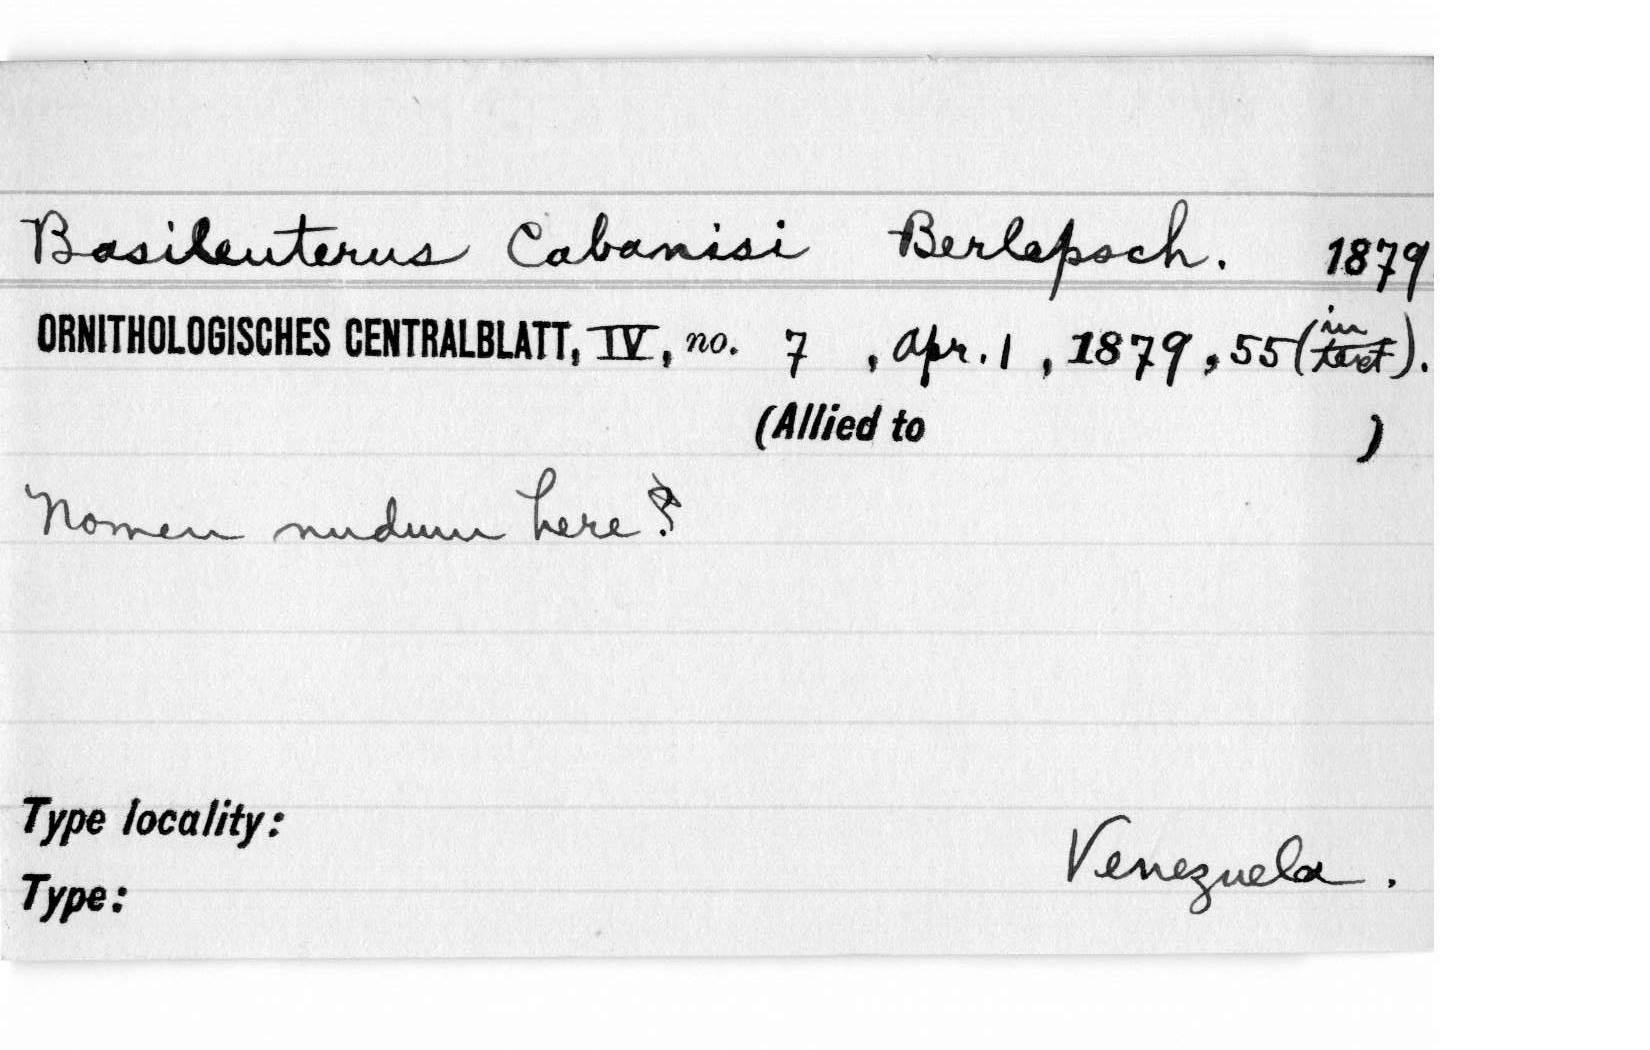 Basileuterus Cabanisi Berlepsch. 1879
ORNITHOLOGISCHES CENTRALBLATT, IV, no. 7, Apr. 1, 1879, 55 (in text).
(Allied to )
Nomen nudum here?
Type locality:
Venezuela.
Type: